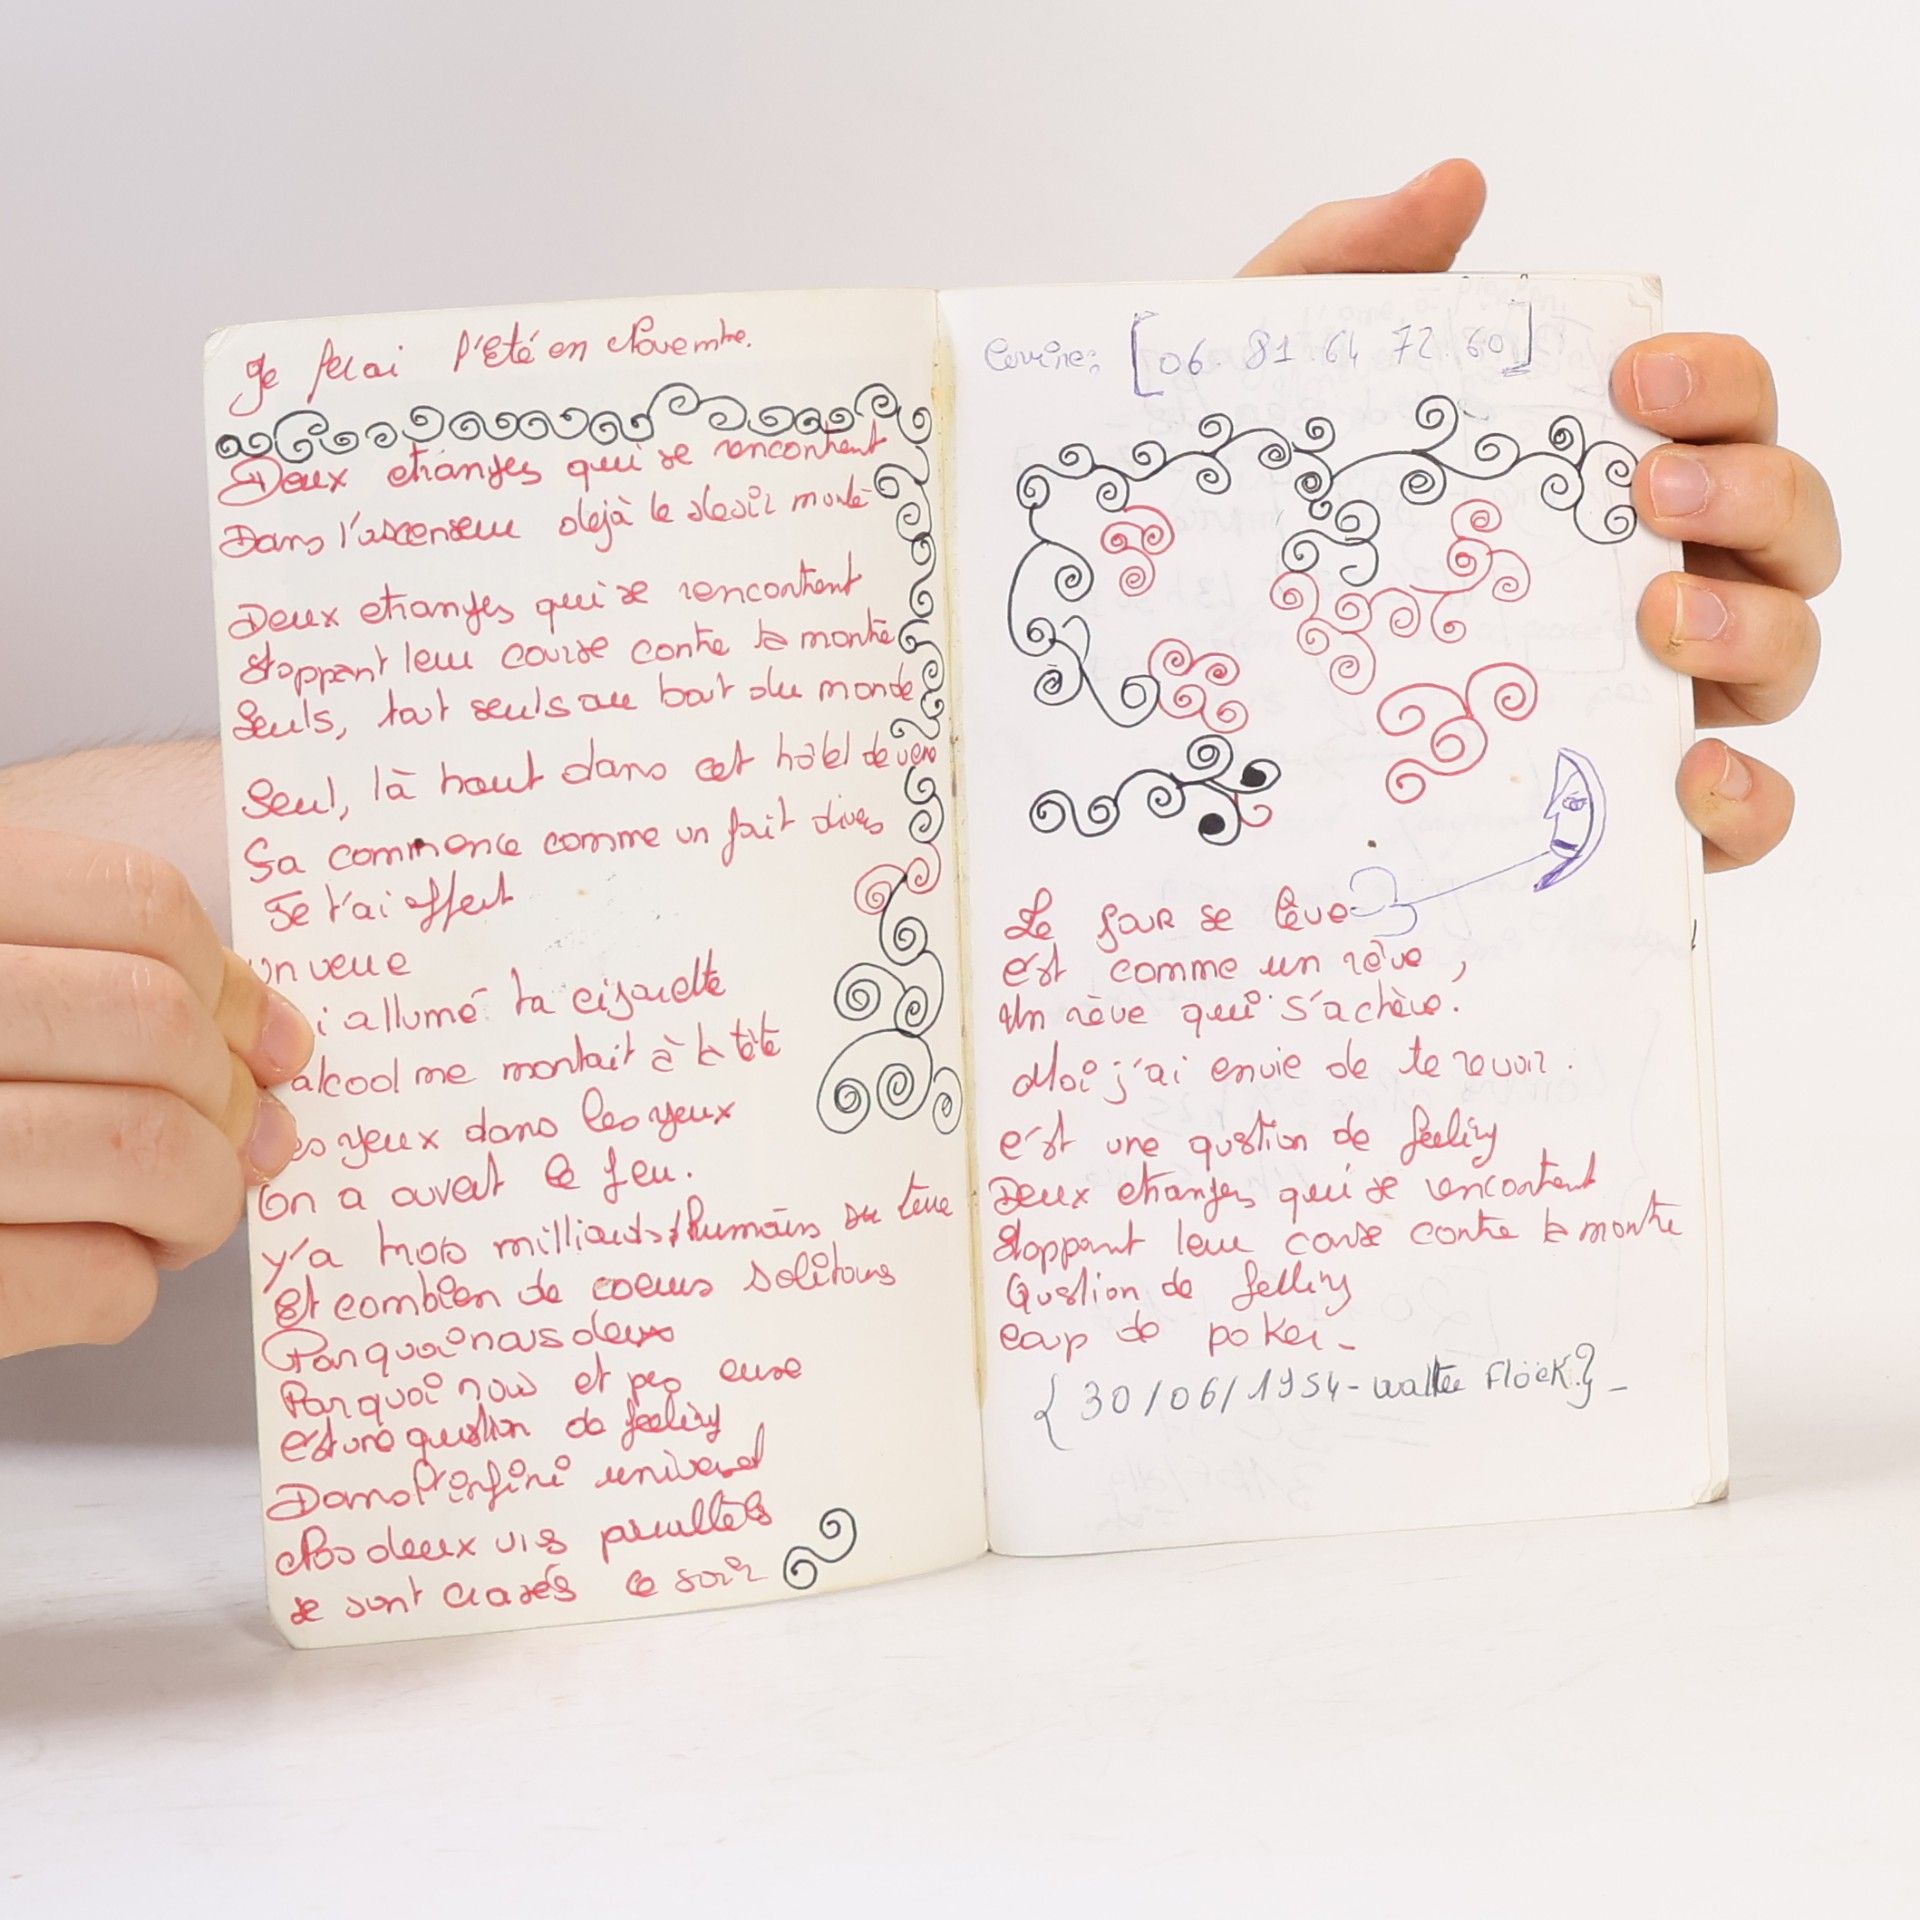 Je ferai l'Eté en Novembre.
Deux etranges qui se rencontrent
Dans l'ascenseur dejà le desir monte
Deux etranges qui se rencontrent
stoppant leur course contre la montre
Seuls, tout seuls au bout du monde
Seul, là haut dans cet hôtel de verre
Sa commence comme un fait divers
Je t'ai offert
un verre
i allumé ta cigarette
alcool me montait à la tête
es yeux dans les yeux
On a ouvert le feu.
y'a trois milliards d'humains sur terre
Et combien de coeurs solitaires
Pourquoi nous deux
Pourquoi nous et pas eux
c'est une question de feeling
Dans l'infini universel
Nos deux vies parallèles
se sont croisés ce soir
[06. 81 64 72 60]
Le jour se lève
c'est comme un rêve,
Un rêve qui s'achève.
Moi j'ai envie de te revoir.
c'est une qustion de feeling
Deux etranges qui se rencontrent
stoppant leur course contre la montre
Qustion de felling
coup de poker -
{30/06/1954 - walter Flöck?} -